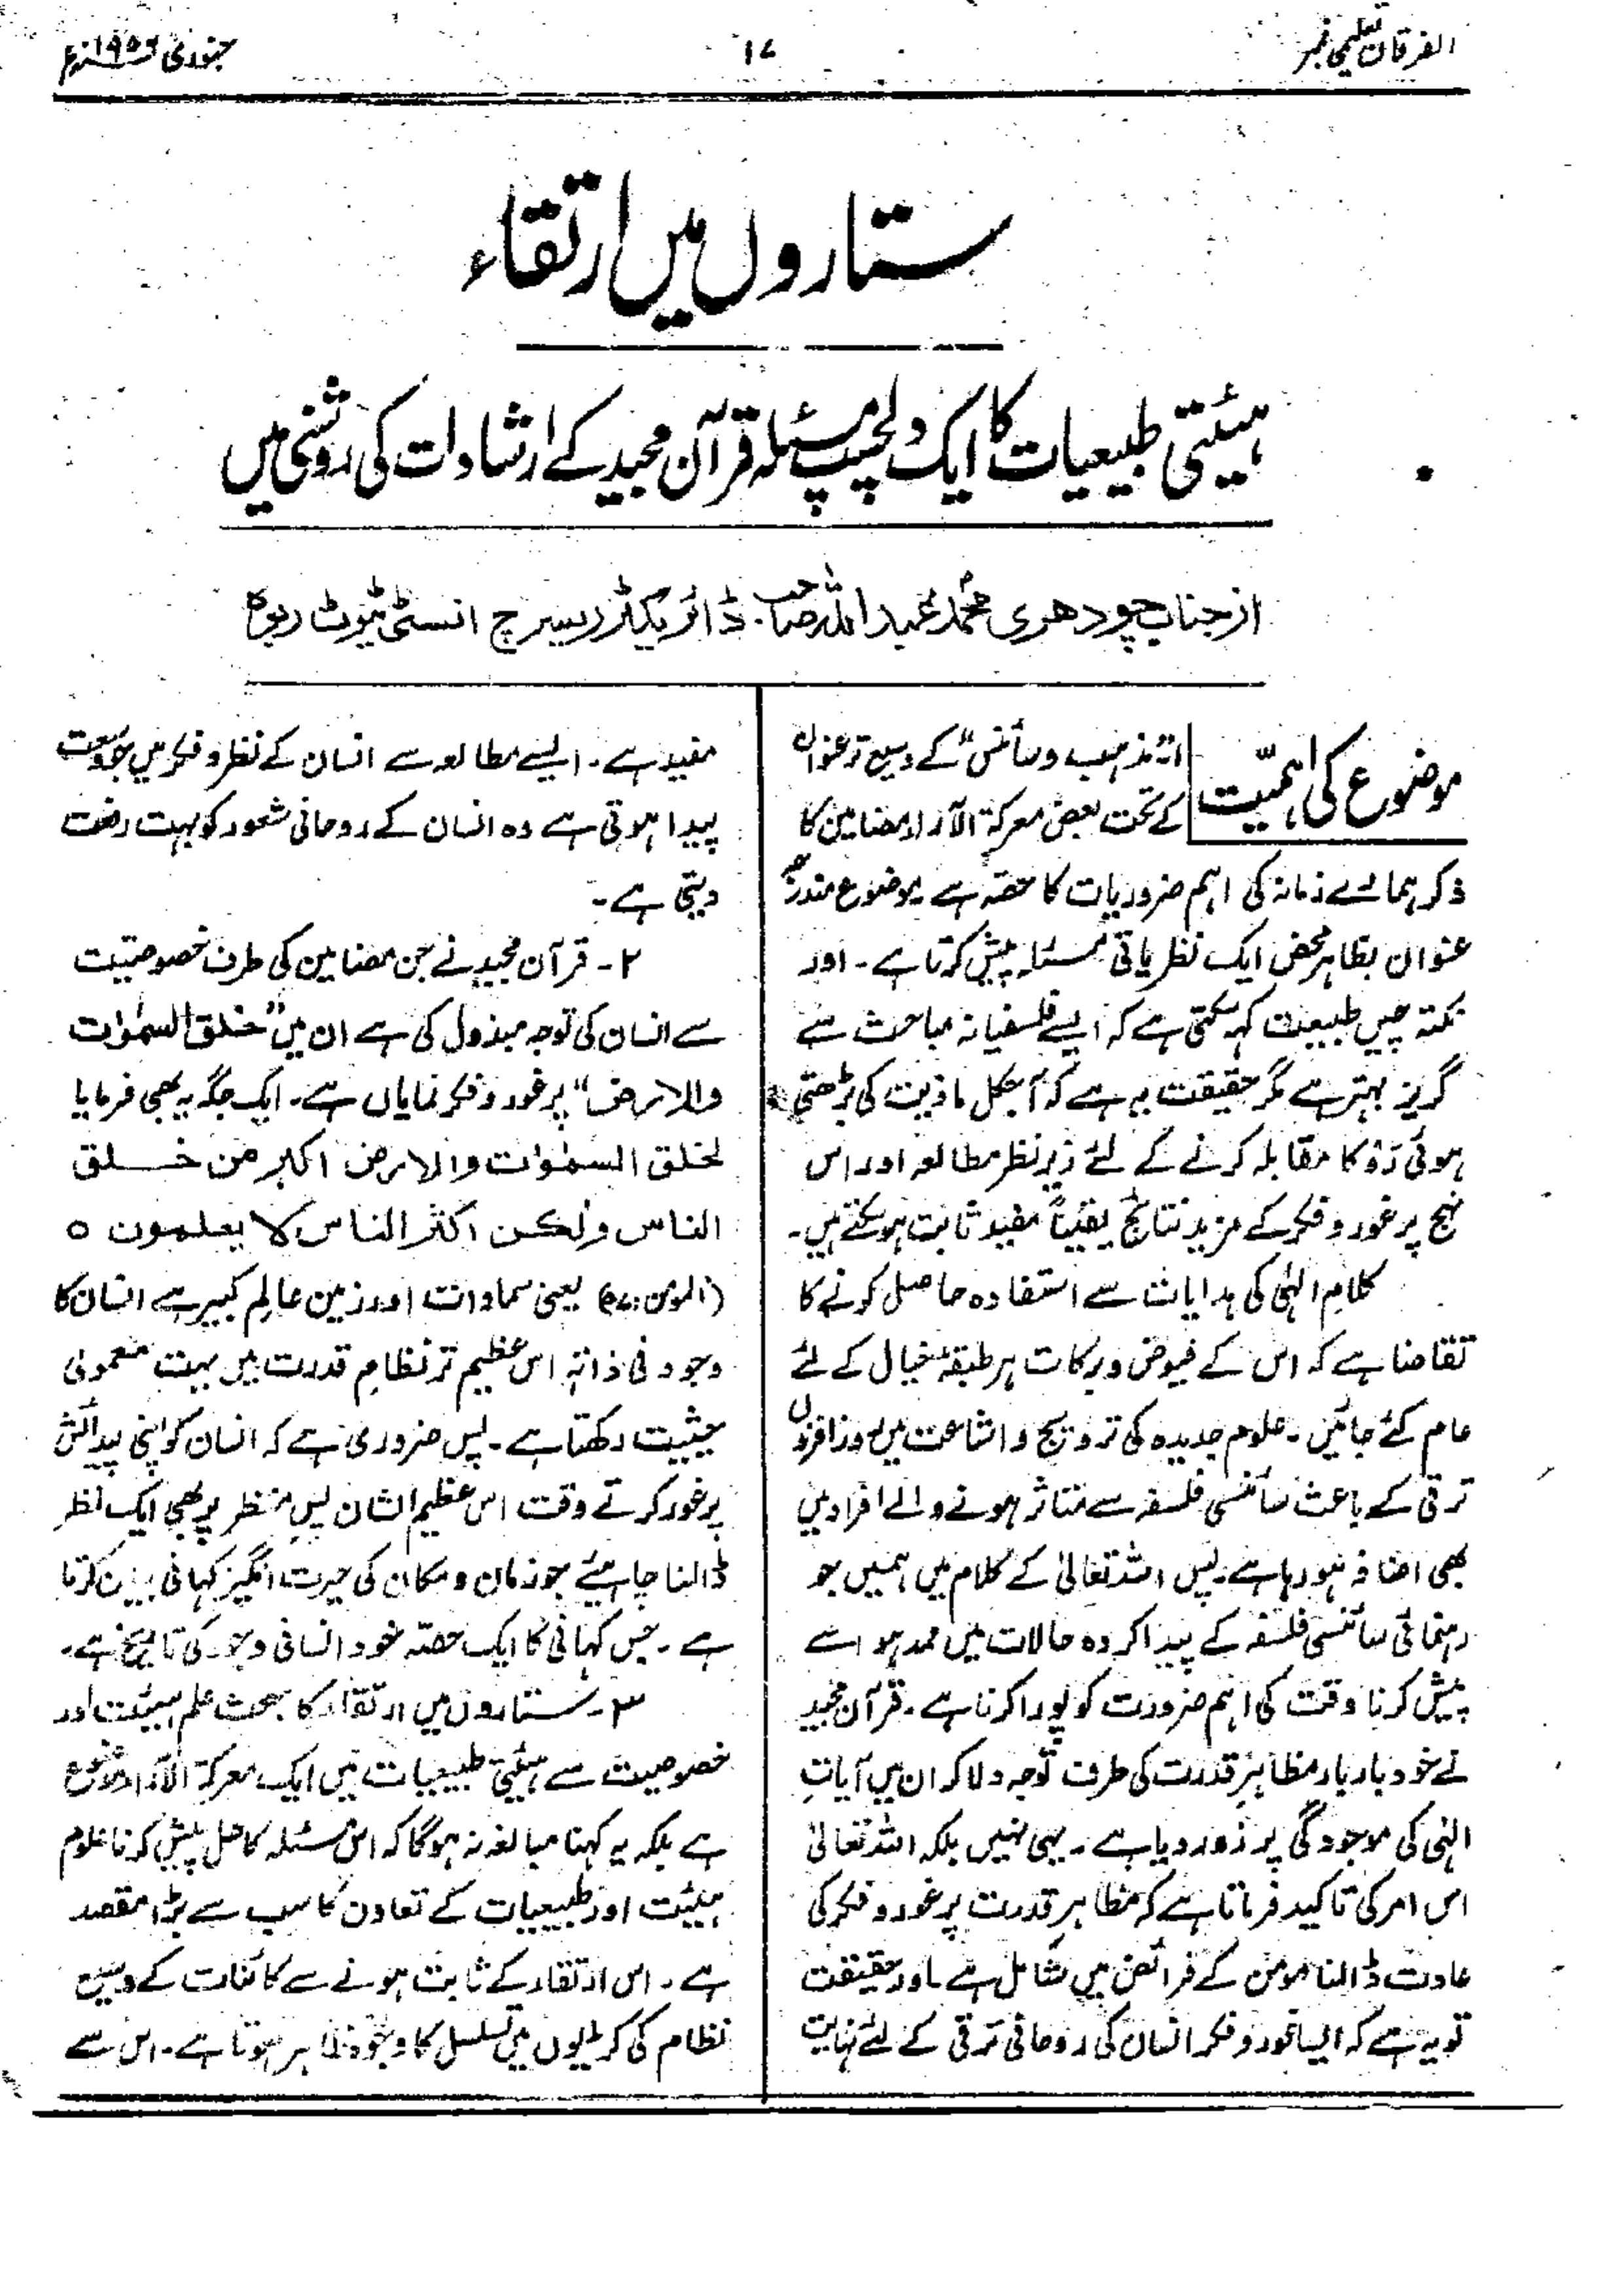 الفرقان تعلیمی نمبر
۱۷
جنوری ۱۹۵۶ء
ستاروں میں ارتقاء
ہیئتی طبیعیات کا ایک دلچسپ مسئلہ قرآن مجید کے ارشادات کی روشنی میں
از جناب چودھری محمد عبد اللہ صاحب. ڈائریکٹر ریسرچ انسٹی ٹیوٹ ربوہ
موضوع کی اہمیّت
۱۔ "مذہب و سائنس" کے وسیع تر عنوان
کے تحت بعض معرکۃ الآراء مضامین کا
ذکر ہمارے زمانہ کی اہم ضروریات کا حصّہ ہے۔ موضوع مندرجہ
عنوان بظاہر محض ایک نظریاتی مسئلہ پیش کرتا ہے۔ اور
نکتہ چیں طبیعت کہہ سکتی ہے کہ ایسے فلسفیانہ مباحث سے
گریز بہتر ہے مگر حقیقت یہ ہے کہ آجکل مادیت کی بڑھتی
ہوئی رَو کا مقابلہ کرنے کے لئے زیرِ نظر مطالعہ اور اس
نہج پر غور و فکر کے مزید نتائج یقیناً مفید ثابت ہو سکتے ہیں۔
کلامِ الٰہی کی ہدایات سے استفادہ حاصل کرنے کا
تقاضا ہے کہ اس کے فیوض و برکات ہر طبقۂ خیال کے لئے
عام کئے جائیں۔ علوم جدیدہ کی ترویج و اشاعت میں روز افزوں
ترقی کے باعث سائنسی فلسفہ سے متاثر ہونے والے افراد میں
بھی اضافہ ہو رہا ہے۔ پس اللہ تعالیٰ کے کلام میں ہمیں جو
رہنمائی سائنسی فلسفہ کے پیدا کردہ حالات میں ممد ہو اسے
پیش کرنا وقت کی اہم ضرورت کو پورا کرنا ہے۔ قرآن مجید
نے خود بار بار مظاہرِ قدرت کی طرف توجہ دلا کر ان میں آیاتِ
الٰہی کی موجودگی پر زور دیا ہے۔ یہی نہیں بلکہ اللہ تعالیٰ
اس امر کی تاکید فرماتا ہے کہ مظاہرِ قدرت پر غور و فکر کی
عادت ڈالنا مومن کے فرائض میں شامل ہے۔ اور حقیقت
تو یہ ہے کہ ایسا غور و فکر انسان کی روحانی ترقی کے لئے نہایت
مفید ہے۔ ایسے مطالعہ سے انسان کے نظر و فکر میں جو وسعت
پیدا ہوتی ہے وہ انسان کے روحانی شعور کو بہت رفعت
دیتی ہے۔
۲۔ قرآن مجید نے جن مضامین کی طرف خصوصیّت
سے انسان کی توجہ مبذول کی ہے ان میں "خلق السمٰوٰت
والارض" پر غور و فکر نمایاں ہے۔ ایک جگہ یہ بھی فرمایا
لخلق السمٰوٰت والارض اکبر من خلق
الناس ولٰکن اکثر الناس لا یعلمون ○
(المومن:۵۷) یعنی سماوات اور زمین عالمِ کبیر ہے انسان کا
وجود فی ذاتہٖ اس عظیم تر نظامِ قدرت میں بہت معمولی
حیثیت رکھتا ہے۔ پس ضروری ہے کہ انسان کو اپنی پیدائش
پر غور کرتے وقت اس عظیم الشان پس منظر پر بھی ایک نظر
ڈالنا چاہیئے جو زمان و مکان کی حیرت انگیز کہانی بیان کرتا
ہے۔ جس کہانی کا ایک حصّہ خود انسانی وجود کی تاریخ ہے۔
۳۔ ستاروں میں ارتقاء کا بحث علم ہیئت اور
خصوصیت سے ہیئتی طبیعیات میں ایک معرکۃ الآراء موضوع
ہے بلکہ یہ کہنا مبالغہ نہ ہوگا کہ اس مسئلہ کا حل پیش کرنا علوم
ہیئت اور طبیعیات کے تعاون کا سب سے بڑا مقصد
ہے۔ اس ارتقاء کے ثابت ہونے سے کائنات کے وسیع
نظام کی کڑیوں میں تسلسل کا وجود ظاہر ہوتا ہے۔ اس سے